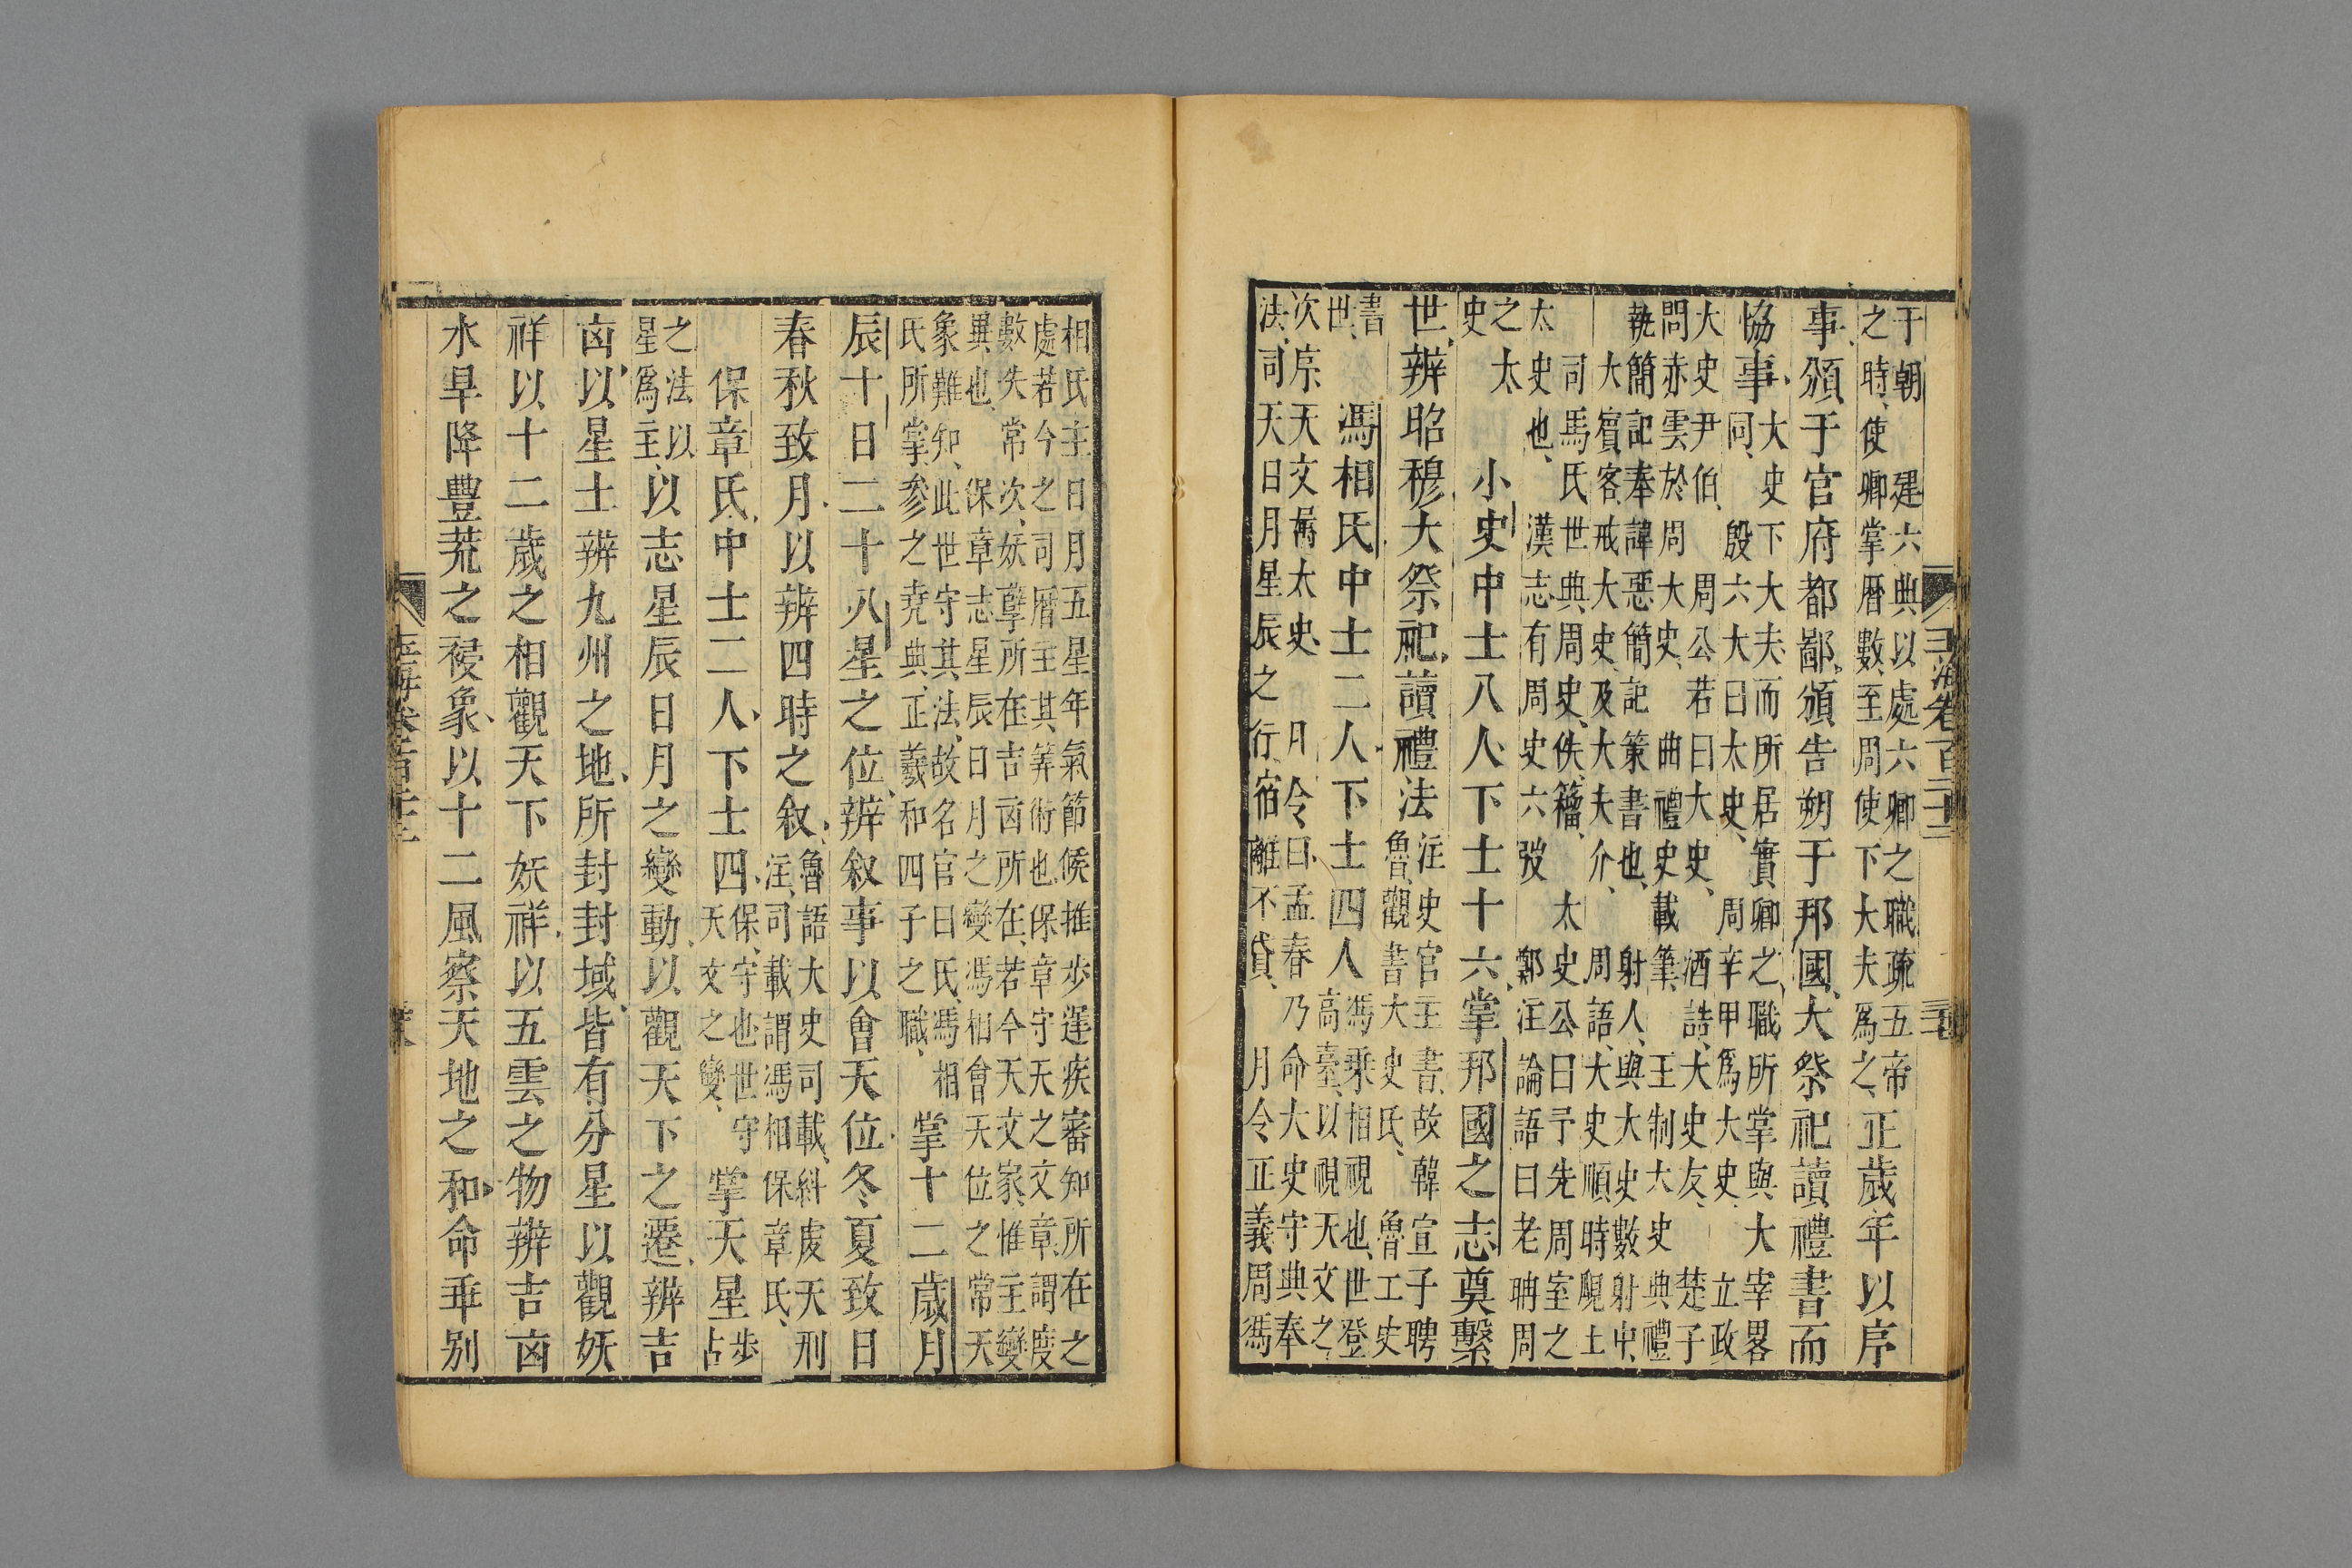 于朝 建六典以處六卿之職疏五帝
之時使卿掌曆數至周使下大夫爲之
正歲年以序
事頒于官府都鄙頒告朔于邦國大祭祀讀禮書而
協事
大史下大夫而所居實卿之職所掌與大宰畧
同 殷六大曰太史 周辛甲爲大史 立政
大史尹伯 周公若曰大史 酒誥大史友 楚子
問赤雲於周大史 曲禮史載筆 王制大史典禮
執簡記奉諱惡簡記策書也 射人與大史數射中
大賓客戒大史及大夫介 周語大史順時覛土
司馬氏世典周史佚籀 太史公曰予先周室之
太史也 漢志有周史六弢 鄭注論語曰老聃周
之太
史
小史中士八人下士十六掌邦國之志奠繫
世辨昭穆大祭祀讀禮法
注史官主書故韓宣子聘
魯觀書大史氏 魯工史
書
世
馮相氏中士二人下士四人
馮乘相視也世登
高臺以視天文之
次序天文屬太史 月令曰孟春乃命大史守典奉
法司天日月星辰之行宿離不貸 月令正義周馮
玉海卷百二十二
相氏主日月五星年氣節候推步遲疾審知所在之
處若今之司曆主其筭術也保章守天之文章謂度
數失常次妖孽所在吉凶所在若今天文家惟主變
異也 保章志星辰日月之變馮相會天位之常天
象難知此世守其法故名官曰氏馮相
氏所掌參之堯典正羲和四子之職
掌十二歲月
辰十日二十八星之位辨敘事以會天位冬夏致日
春秋致月以辨四時之敘
魯語大史司載糾虔天刑
注司載謂馮相保章氏
保章氏中士二人下士四
保守也世守
天文之變
掌天星
步
占
之法以
星爲主
以志星辰日月之變動以觀天下之遷辨吉
凶以星土辨九州之地所封封域皆有分星以觀妖
祥以十二歲之相觀天下妖祥以五雲之物辨吉凶
水旱降豐荒之祲象以十二風察天地之和命乖别